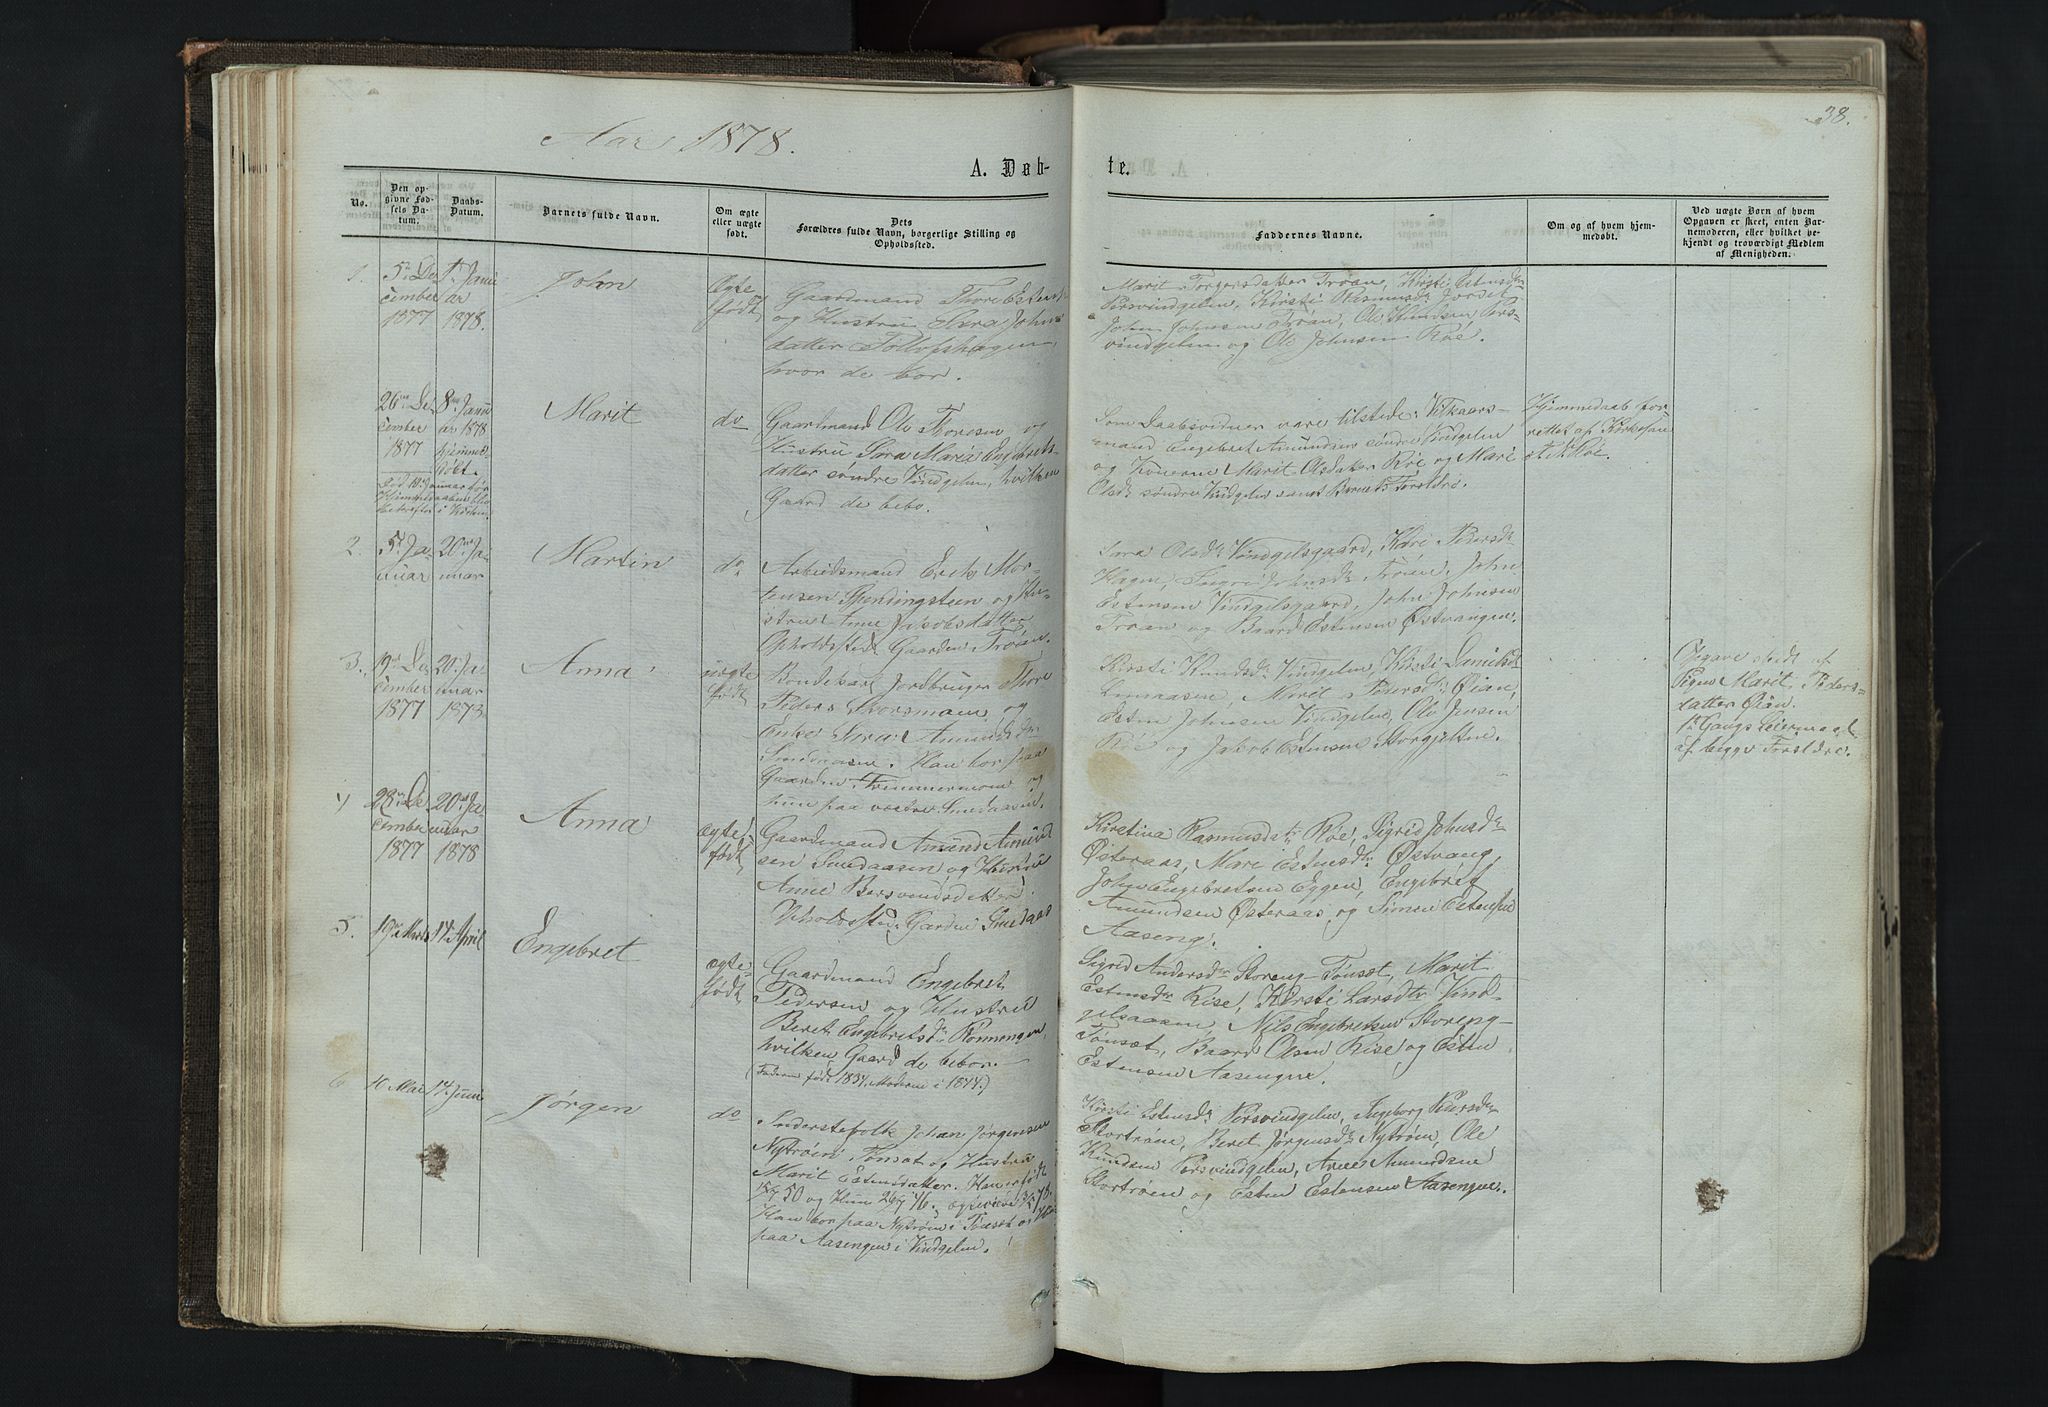 38.
Aar 1878.
A. Døb-
te.
No.
Den op-
givne Fød-
sels Da-
tum.
Daabs-
Datum.
Barnets fulde Navn.
Om ægte
eller uægte
født.
Dets
Forældres fulde Navn, borgerlige Stilling og
Opholdssted.
Faddernes Navne.
Om og af hvem hjem-
medøbt.
Ved uægte Børn af hvem
Opgaven er skeet, enten Bar-
nemoderen, eller hvilket be-
kjendt og troværdigt Medlem
af Menigheden.
1.
5te De
cember
1877
1ste Janu
ar
1878.
John
Ægte
født
Gaardmand Thore Estens.
og Hustru Sara Johns
datter
hvor de bor.
Marit Torgersdatter Trøan, Kirsti Estensdr
Persvindgelen, Kirsti Rasmusdr Jordet
John Johnsen Trøan, Ole Knudsen Pers-
vindgelen og Ole Johnsen Røe.
26de De
cember
1877
8de Janu
ar 1878
hjemme-
døbt.
Marit
do
Gaardmand Ole Thoresen og
Hustru Sara Maria Engebrets-
datter søndre Vindgelen, hvilken
Gaard de bebo.
Som Daabsvidner vare tilstede: Vilkaars-
mand Engebret Amundsen søndre Vindgelen
og Konerne Marit Olsdatter Røe og Mari
Olsdr søndre Vindgelen samt Barnets Forældre.
Hjemmedaab for-
rettet af Kirkesan
Røe.
2.
5te Ja-
nuar
20de Ja-
nuar
Martin
do.
Arbeidsmand Erik Mor-
tensen Spendingsteen og Hu-
stru Anne Jakobsdatter
Opholdssted: Gaarden Trøan.
Sara Olsdr Vindgelsgaard, Kari Pedersdr
Hagen, Sigrid Johnsdr Trøan, John
Estensen Vindgelsgaard, John Johnsen
Trøan og Baard Estensen Østvangen.
3.
19de De
cember
1877
20de Ja
nuar
1878
Anna
uægte
født
Bondekarl Jordbruger Thore
Peders og
Enke Sara Amundsdr
Smedaasen. Han bor paa
Gaarden og
hun paa vestre Smedaasen.
Kirsti Knudsdr Vindgelen, Kirsti
Marit Pedersdr Øian,
Esten Johnsen Vindgelen, Ole Jensen
Røe og Jakob Estensen Storgjelten.
Opgave skedt af
Pigen Marit Peders-
datter Øian.
1ste Gangs Leiermaal
af begge Forældre.
4
28de De
cember
1877
20de Ja
nuar
1878
Anna
ægte
født
Gaardmand Amund Amund
sen Smedaasen og Hustru
Anne Bersvendsdatter.
Opholdssted: Gaarden Smedaas
Kirstina Rasmusdr Røe, Sigrid Johnsdr
Østeraas, Mari Estensdr Østvang,
John Engebretsen Eggen, Engebret
Amundsen Østeraas og Simen Estensen
Aaseng.
5.
19de Marts
14 April
Engebret
ægte-
født
Gaardmand Engebret
Pedersen og Hustru
Beret Engebretsdr Rønningen,
hvilken Gaard de bebor.
(Faderen født 1834, Moderen i 1844.)
Sigrid Andersdr Storeng Tønset, Marit
Estensdr Rise, Kirsti Larsdtr Vind-
gelsaasen, Nils Engebretsen Storeng-
Tønset, Baard Olsen Rise og Esten
Estensen Aasengen.
6
10 Mai
14. Juni
Jørgen
do
Inderstefolk Johan Jørgensen
Nytrøen Tønset og Hustru
Marit Estensdatter. Han er født
50 og Hun 46.
Han bor paa Nytrøen i Tønset og Hun
paa Aasengen i Vindgelen.
Kirsti Estensdr Persvindgelen, Ingeborg Pedersdr
Stortrøen, Beret Jørgensdr Nytrøen, Ole
Knudsen Persvindgelen, Arne Amundsen
Stortrøen og Esten Estensen Aasengen.